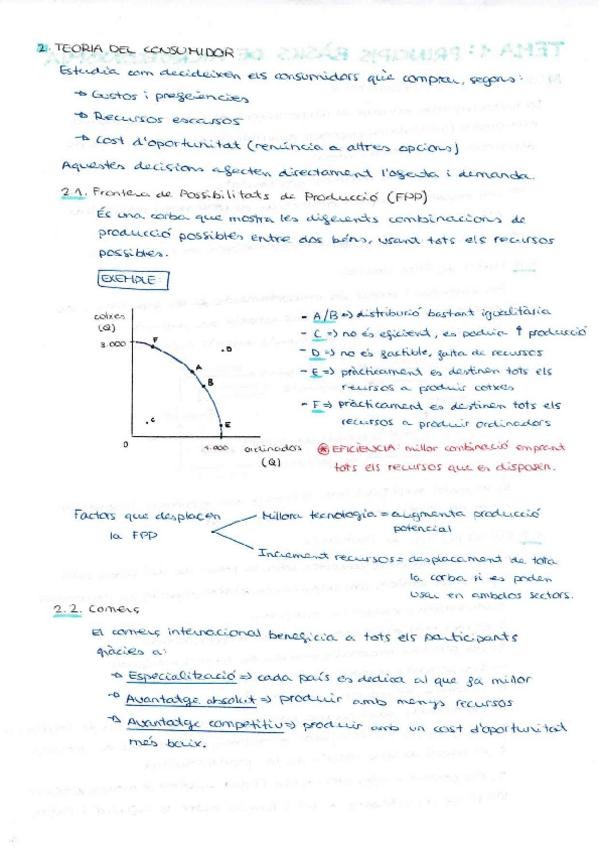 2. TEORIA DEL CONSUMIDOR
Estudia com decideixen els consumidors què comprar, segons:
→ Gustos i preferències
→ Recursos escassos
→ Cost d'oportunitat (renúncia a altres opcions)
Aquestes decisions afecten directament l'oferta i demanda.
2.1. Frontera de Possibilitats de Producció (FPP)
És una corba que mostra les diferents combinacions de
producció possibles entre dos béns, usant tots els recursos
possibles.
EXEMPLE:
cotxes
(Q)
3.000
F
A
B
D
C
E
0
1.000
ordinadors
(Q)
- A/B => distribució bastant igualitària
- C => no és eficient, es podria ↑ producció
- D => no és factible, falta de recursos
- E => pràcticament es destinen tots els
recursos a produir cotxes
- F => pràcticament es destinen tots els
recursos a produir ordinadors
* EFICIÈNCIA: millor combinació emprant
tots els recursos que es disposen.
Factors que desplacen
la FPP
Millora tecnologia = augmenta producció
potencial
Increment recursos = desplaçament de tota
la corba si es poden
usar en ambdos sectors.
2.2. Comerç
El comerç internacional beneficia a tots els participants
gràcies a:
→ Especialització => cada país es dedica al que fa millor
→ Avantatge absolut => produir amb menys recursos
→ Avantatge competitiu => produir amb un cost d'oportunitat
més baix.